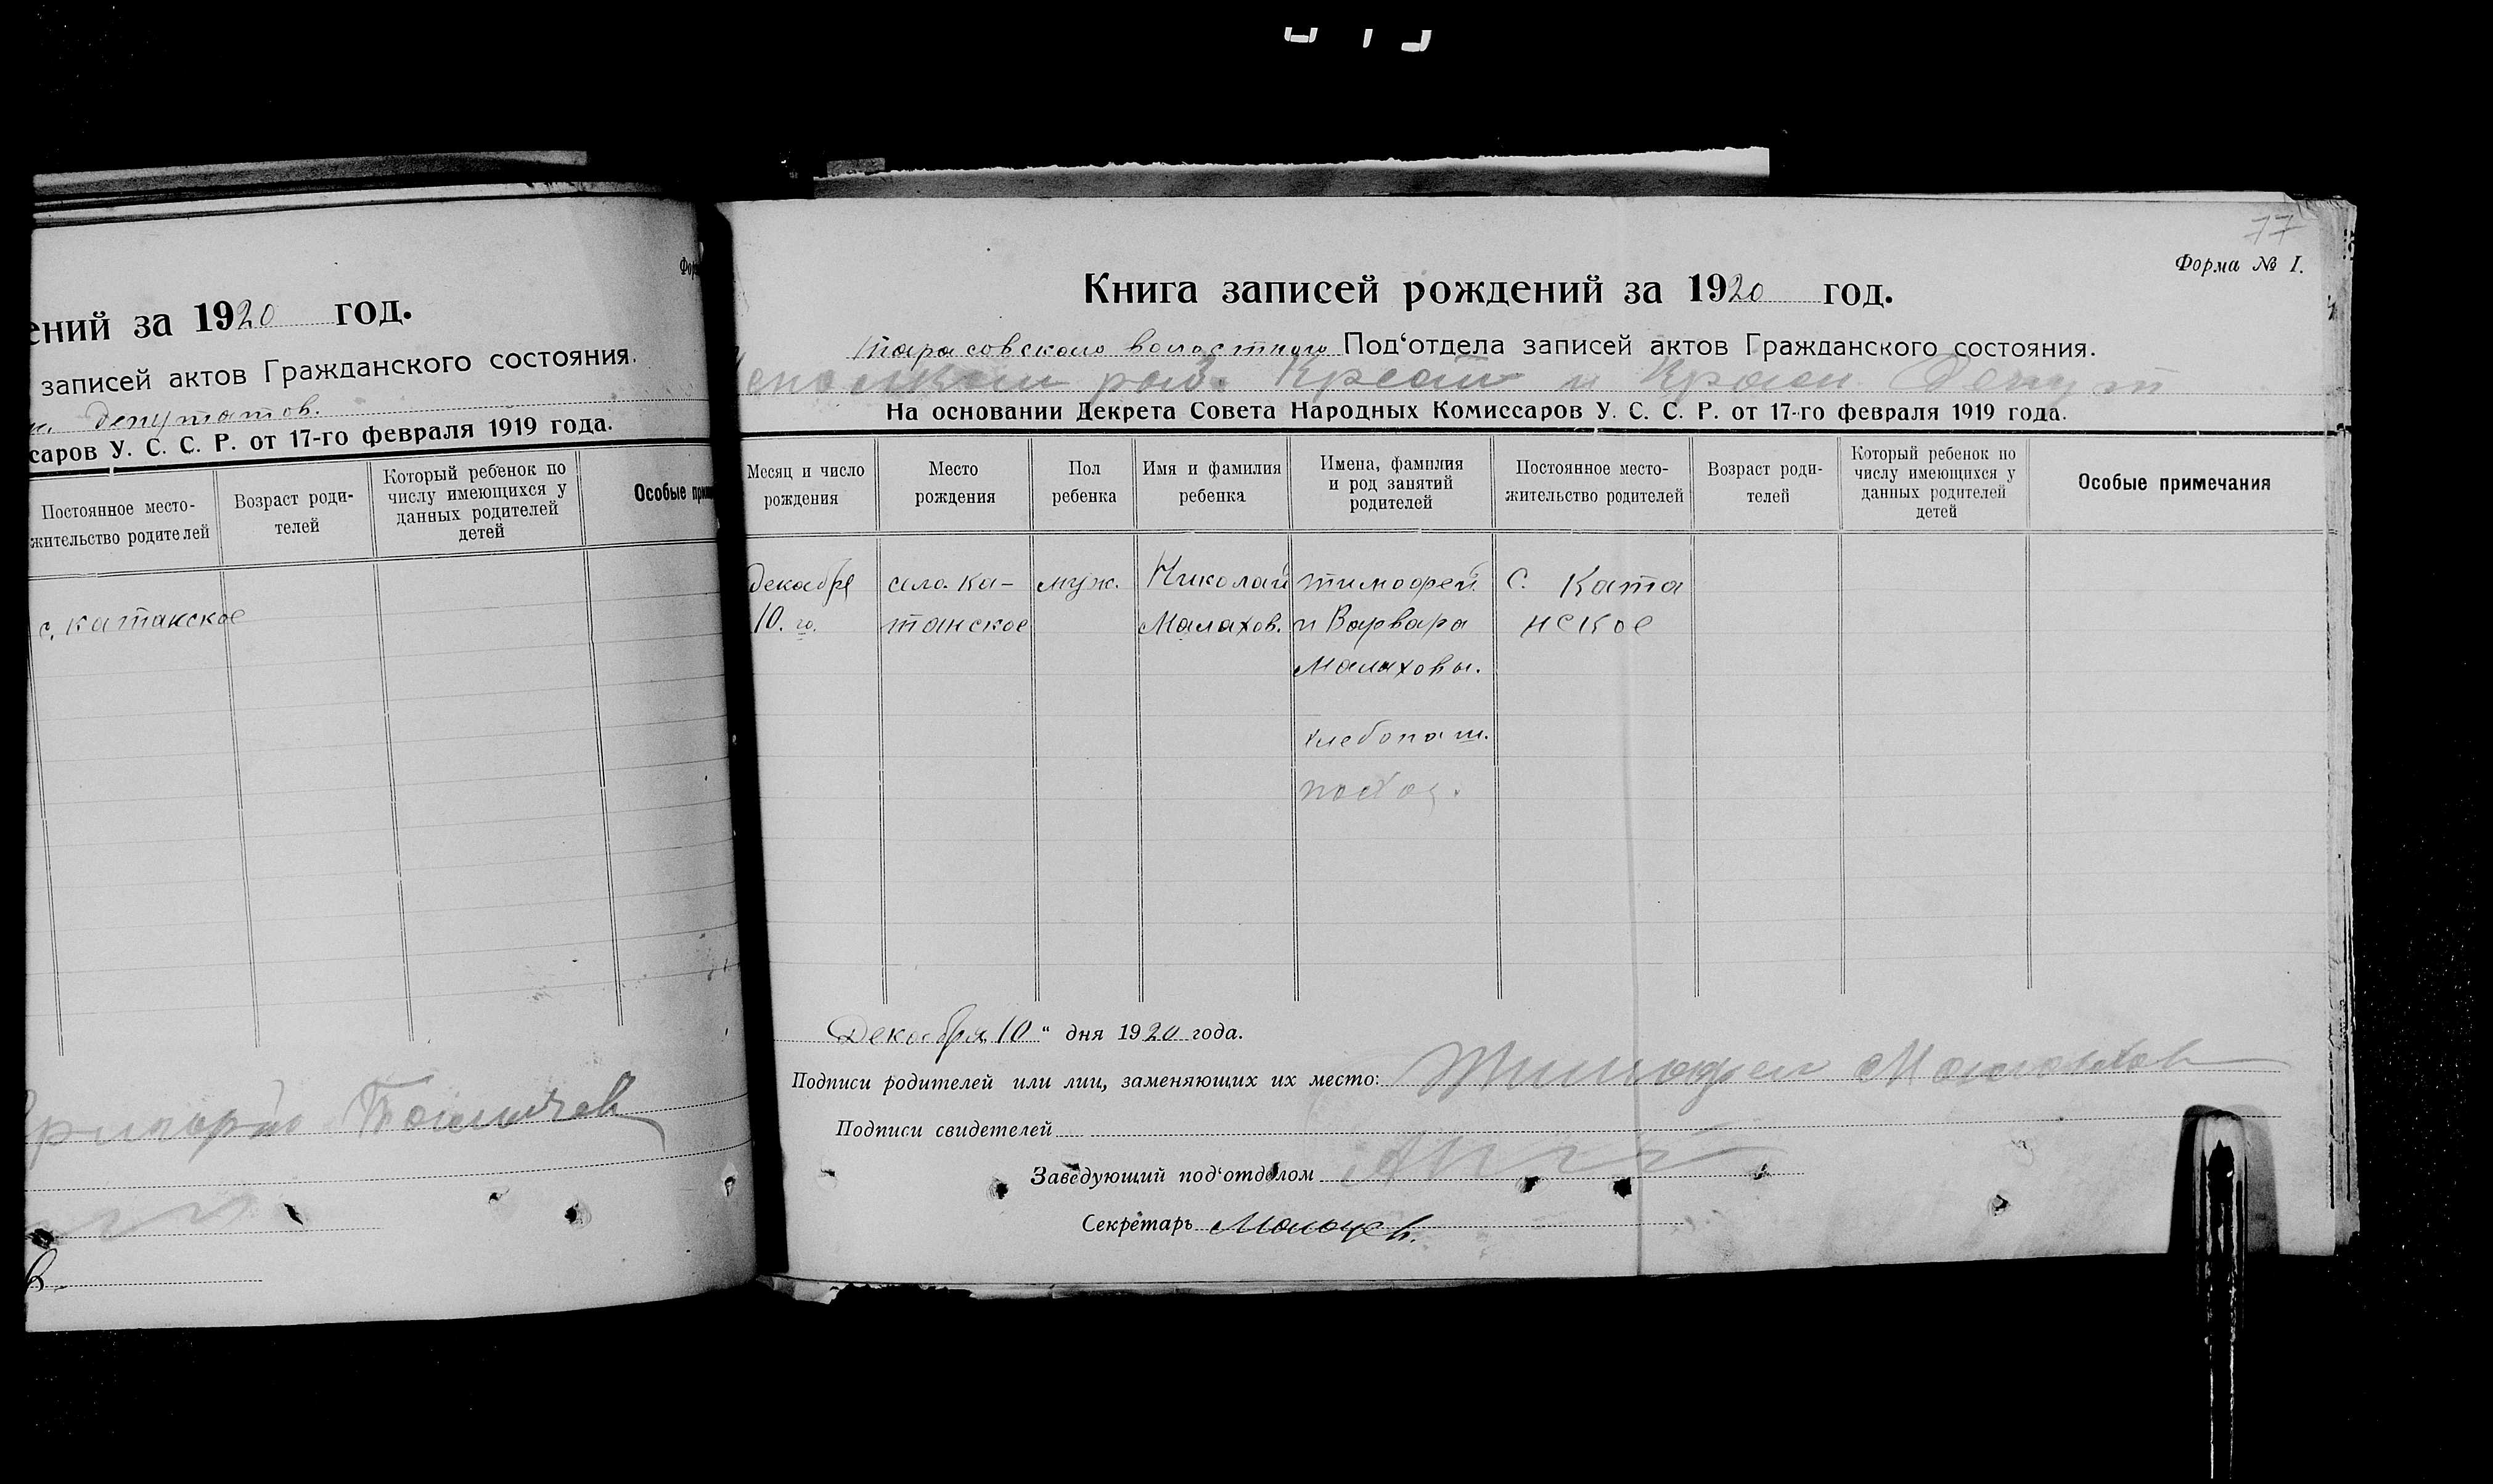 ений за 1920 год.
записей актов Гражданского состояния.
депутатов.
саров У. С. С. Р. от 17-го февраля 1919 года.
Постоянное место-
жительство родителей
Возраст роди-
телей
Который ребенок по
числу имеющихся у
данных родителей
детей
Особые прим
с. Катанское
77
Форма № I.
Книга записей рождений за 1920 год.
Тарасовского волостного Под‘отдела записей актов Гражданского состояния.
раб. Крест и Красн Депут
На основании Декрета Совета Народных Комиссаров У. С. С. Р. от 17-го февраля 1919 года.
Месяц и число
рождения
Место
рождения
Пол
ребенка
Имя и фамилия
ребенка
Имена, фамилия
и род занятий
родителей
Постоянное место-
жительство родителей
Возраст роди-
телей
Который ребенок по
числу имеющихся у
данных родителей
детей
Особые примечания
Декабря
10. го.
село. Ка-
танское
муж.
Николай
Малахов.
Тимофей
и Варвара
Малаховы.
хлебопаш.
С. Ката
нское
Декабря 10 “ дня 1920 года.
Подписи родителей или лиц, заменяющих их место: Тимофей Малахов
Подписи свидетелей
Заведующий под‘отделом
Секретарь